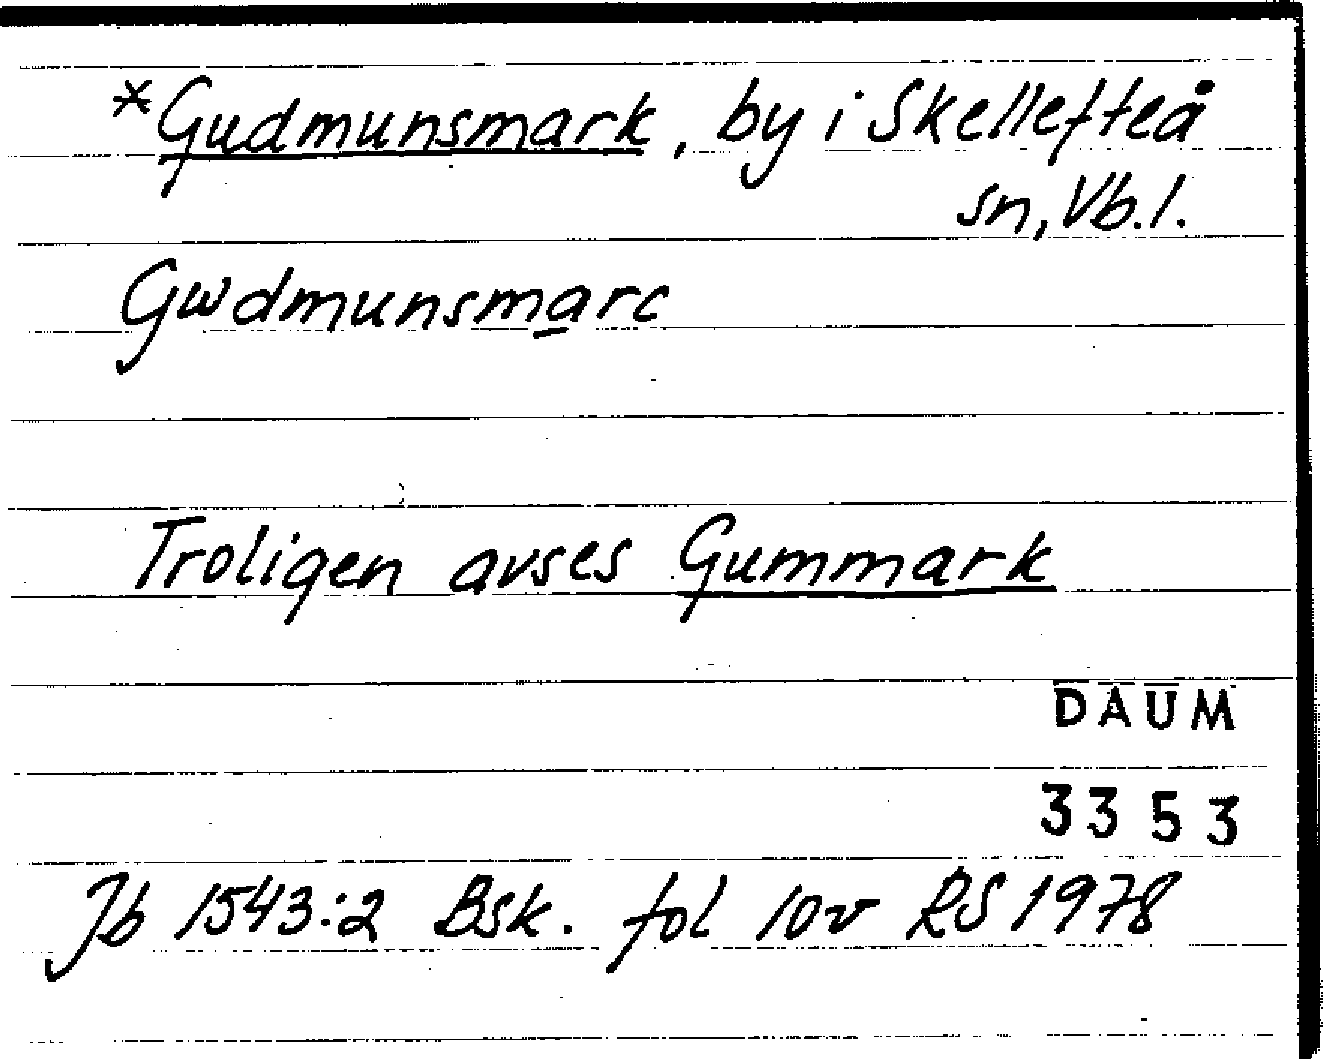 *Gudmunsmark, by i Skellefteå
sn, Vb.l.
Gwdmunsmarc
Troligen avses Gummark
DAUM
3353
Jb 1543:2 Bsk. fol 10v RS 1978